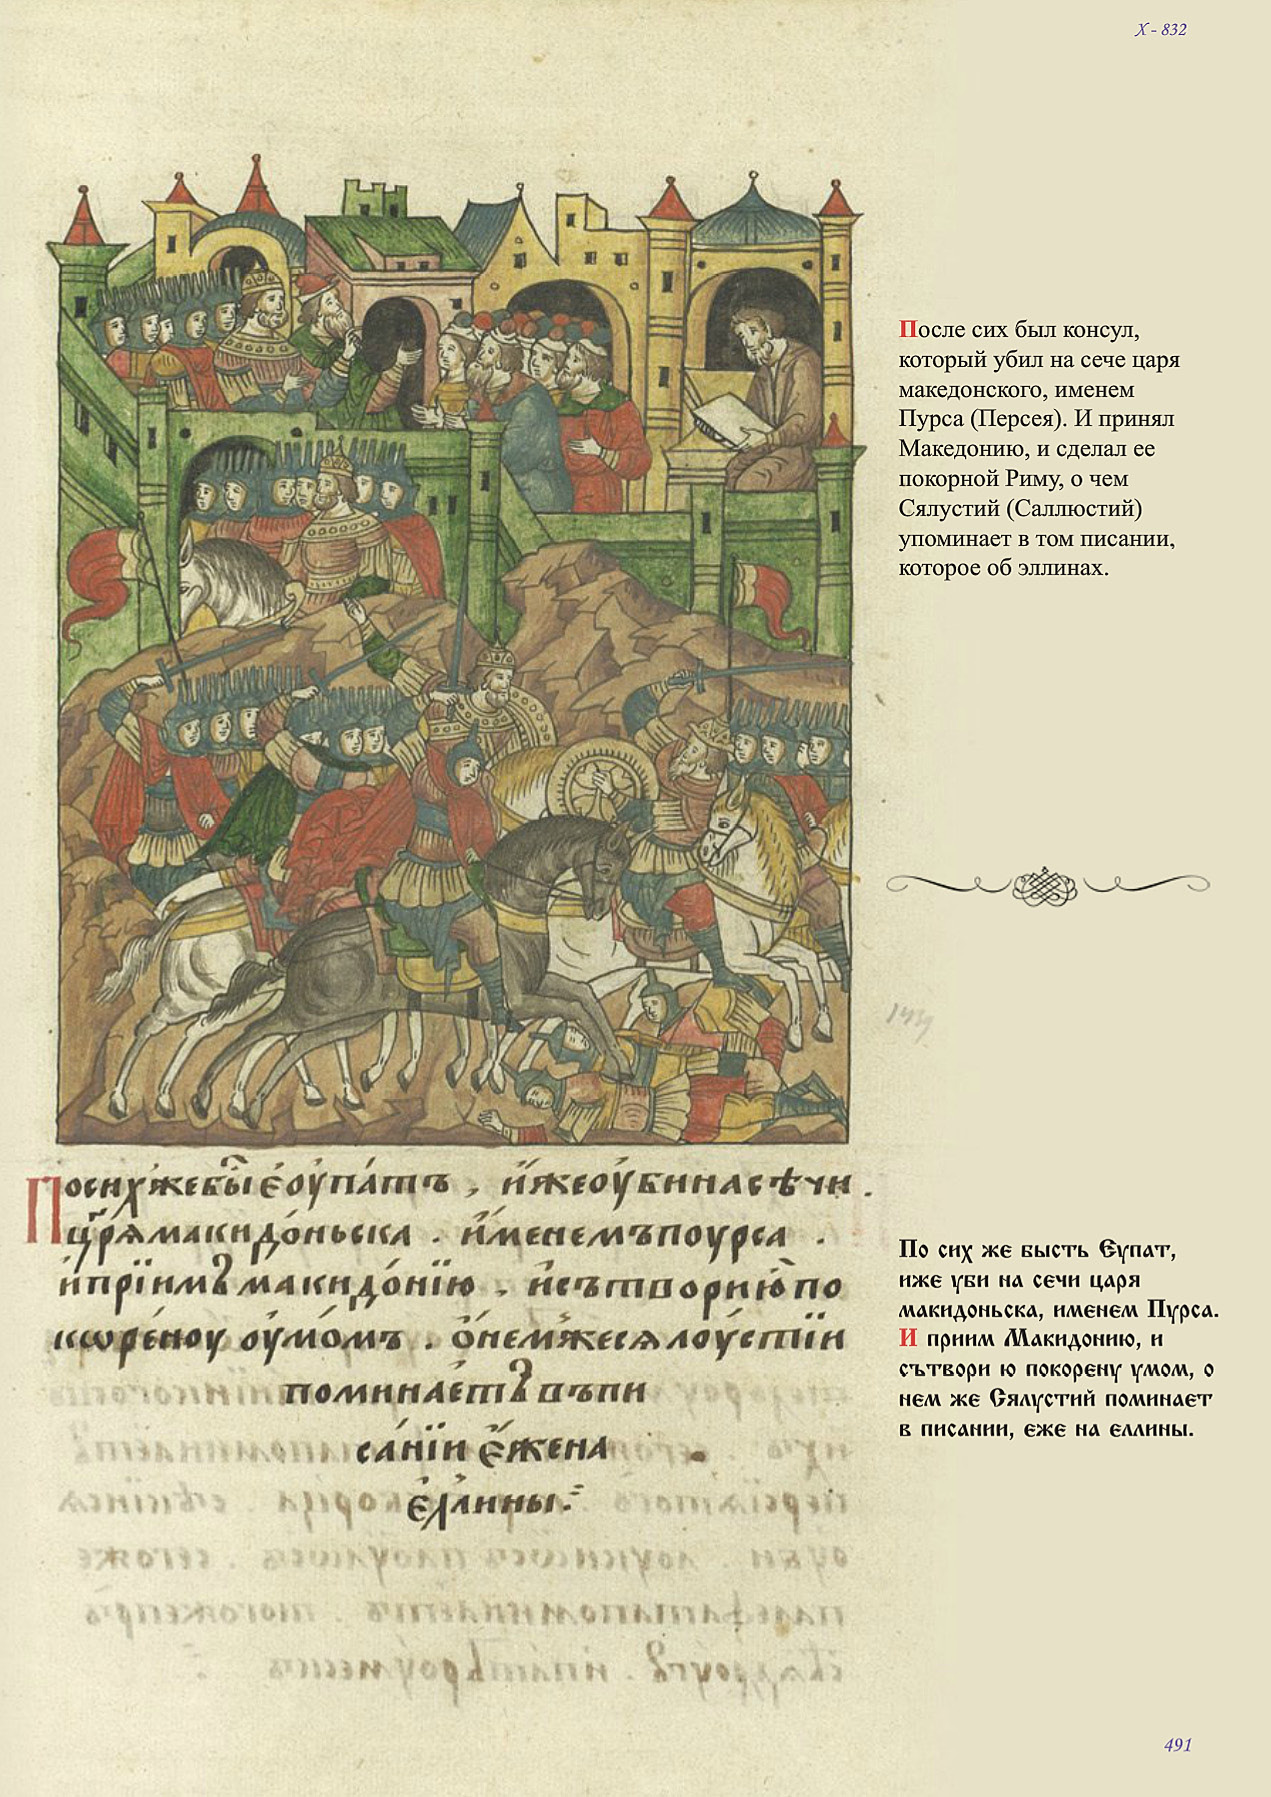 X - 832
После сих был консул,
который убил на сече царя
македонского, именем
Пурса (Персея). И принял
Македонию, и сделал ее
покорной Риму, о чем
Сялустий (Саллюстий)
упоминает в том писании,
которое об эллинах.
По сих же бы́ Єѹпа́тъ, и́же ѹби на сѣчи.
цр҃ѧ макидо́ньска. и́менемъ Поѹрса.
и҆ прїим̾ макидо́нїю. и҆ сътвори ю҆ по
кѡре́ноу оумо́мъ. о҆ нем же Сѧлоу́стїи
помина́єт̾ въ пи
са́нїи є҆́же на
є҆́ллины:
По сих же бысть Єупат,
иже уби на сечи царя
макидоньска, именем Пурса.
И приим Макидонию, и
сътвори ю покорену умом, о
нем же Сялустий поминает
в писании, еже на еллины.
491